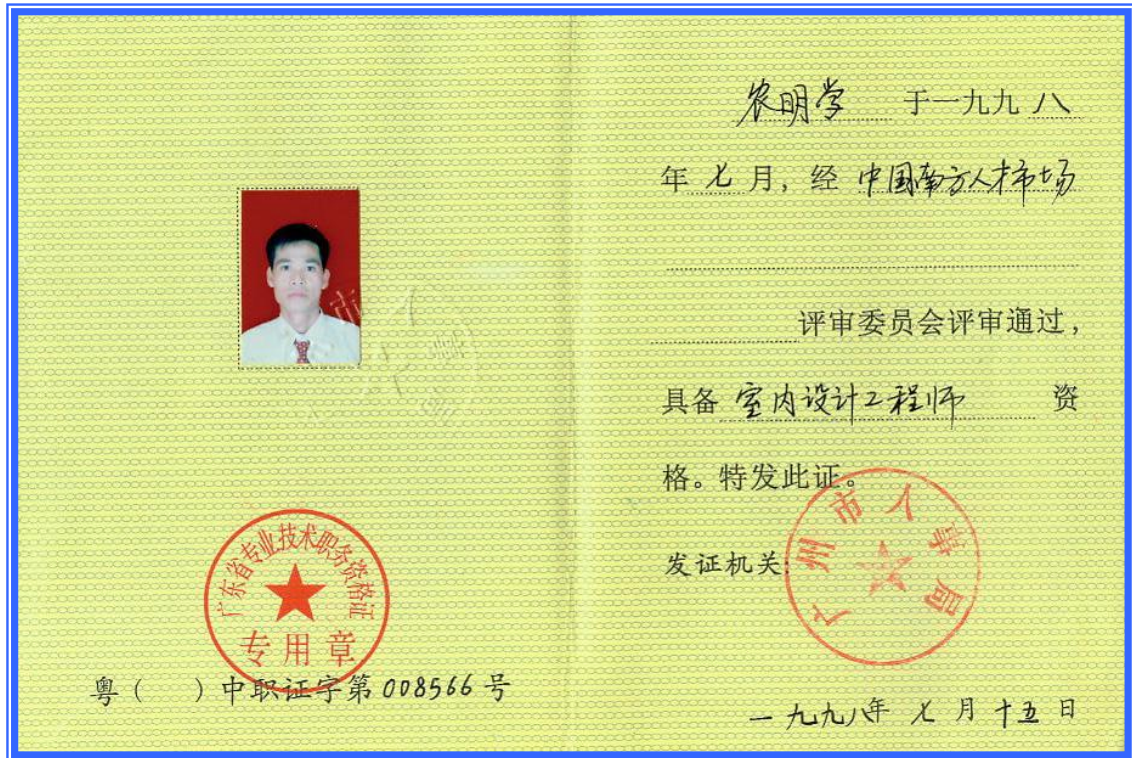 广东省专业技术职务资格证
专用章
粤（　　）中职证字第008566号
农明学 于一九九八
年七月，经 中国南方人才市场
评审委员会评审通过，
具备 室内设计工程师 资
格。特发此证。
发证机关：
广州市人事局
一九九八年七月十五日